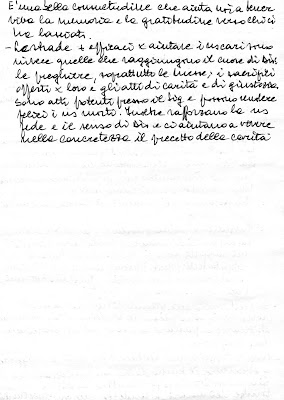 E' una bella consuetudine che aiuta noi a tener
viva la memoria e la gratitudine verso chi ci
ha lasciati.
- Le strade + efficaci x aiutare i ns cari sono
invece quelle che raggiungono il cuore di Dio:
le preghiere, soprattutto le messe, i sacrifici
offerti x loro e gli atti di carità e di giustizia.
Sono atti potenti presso il Sig e possono rendere
felici i ns morti. Inoltre rafforzano la ns
fede e il senso di Dio e ci aiutano a vivere
nella concretezza il precetto della carità